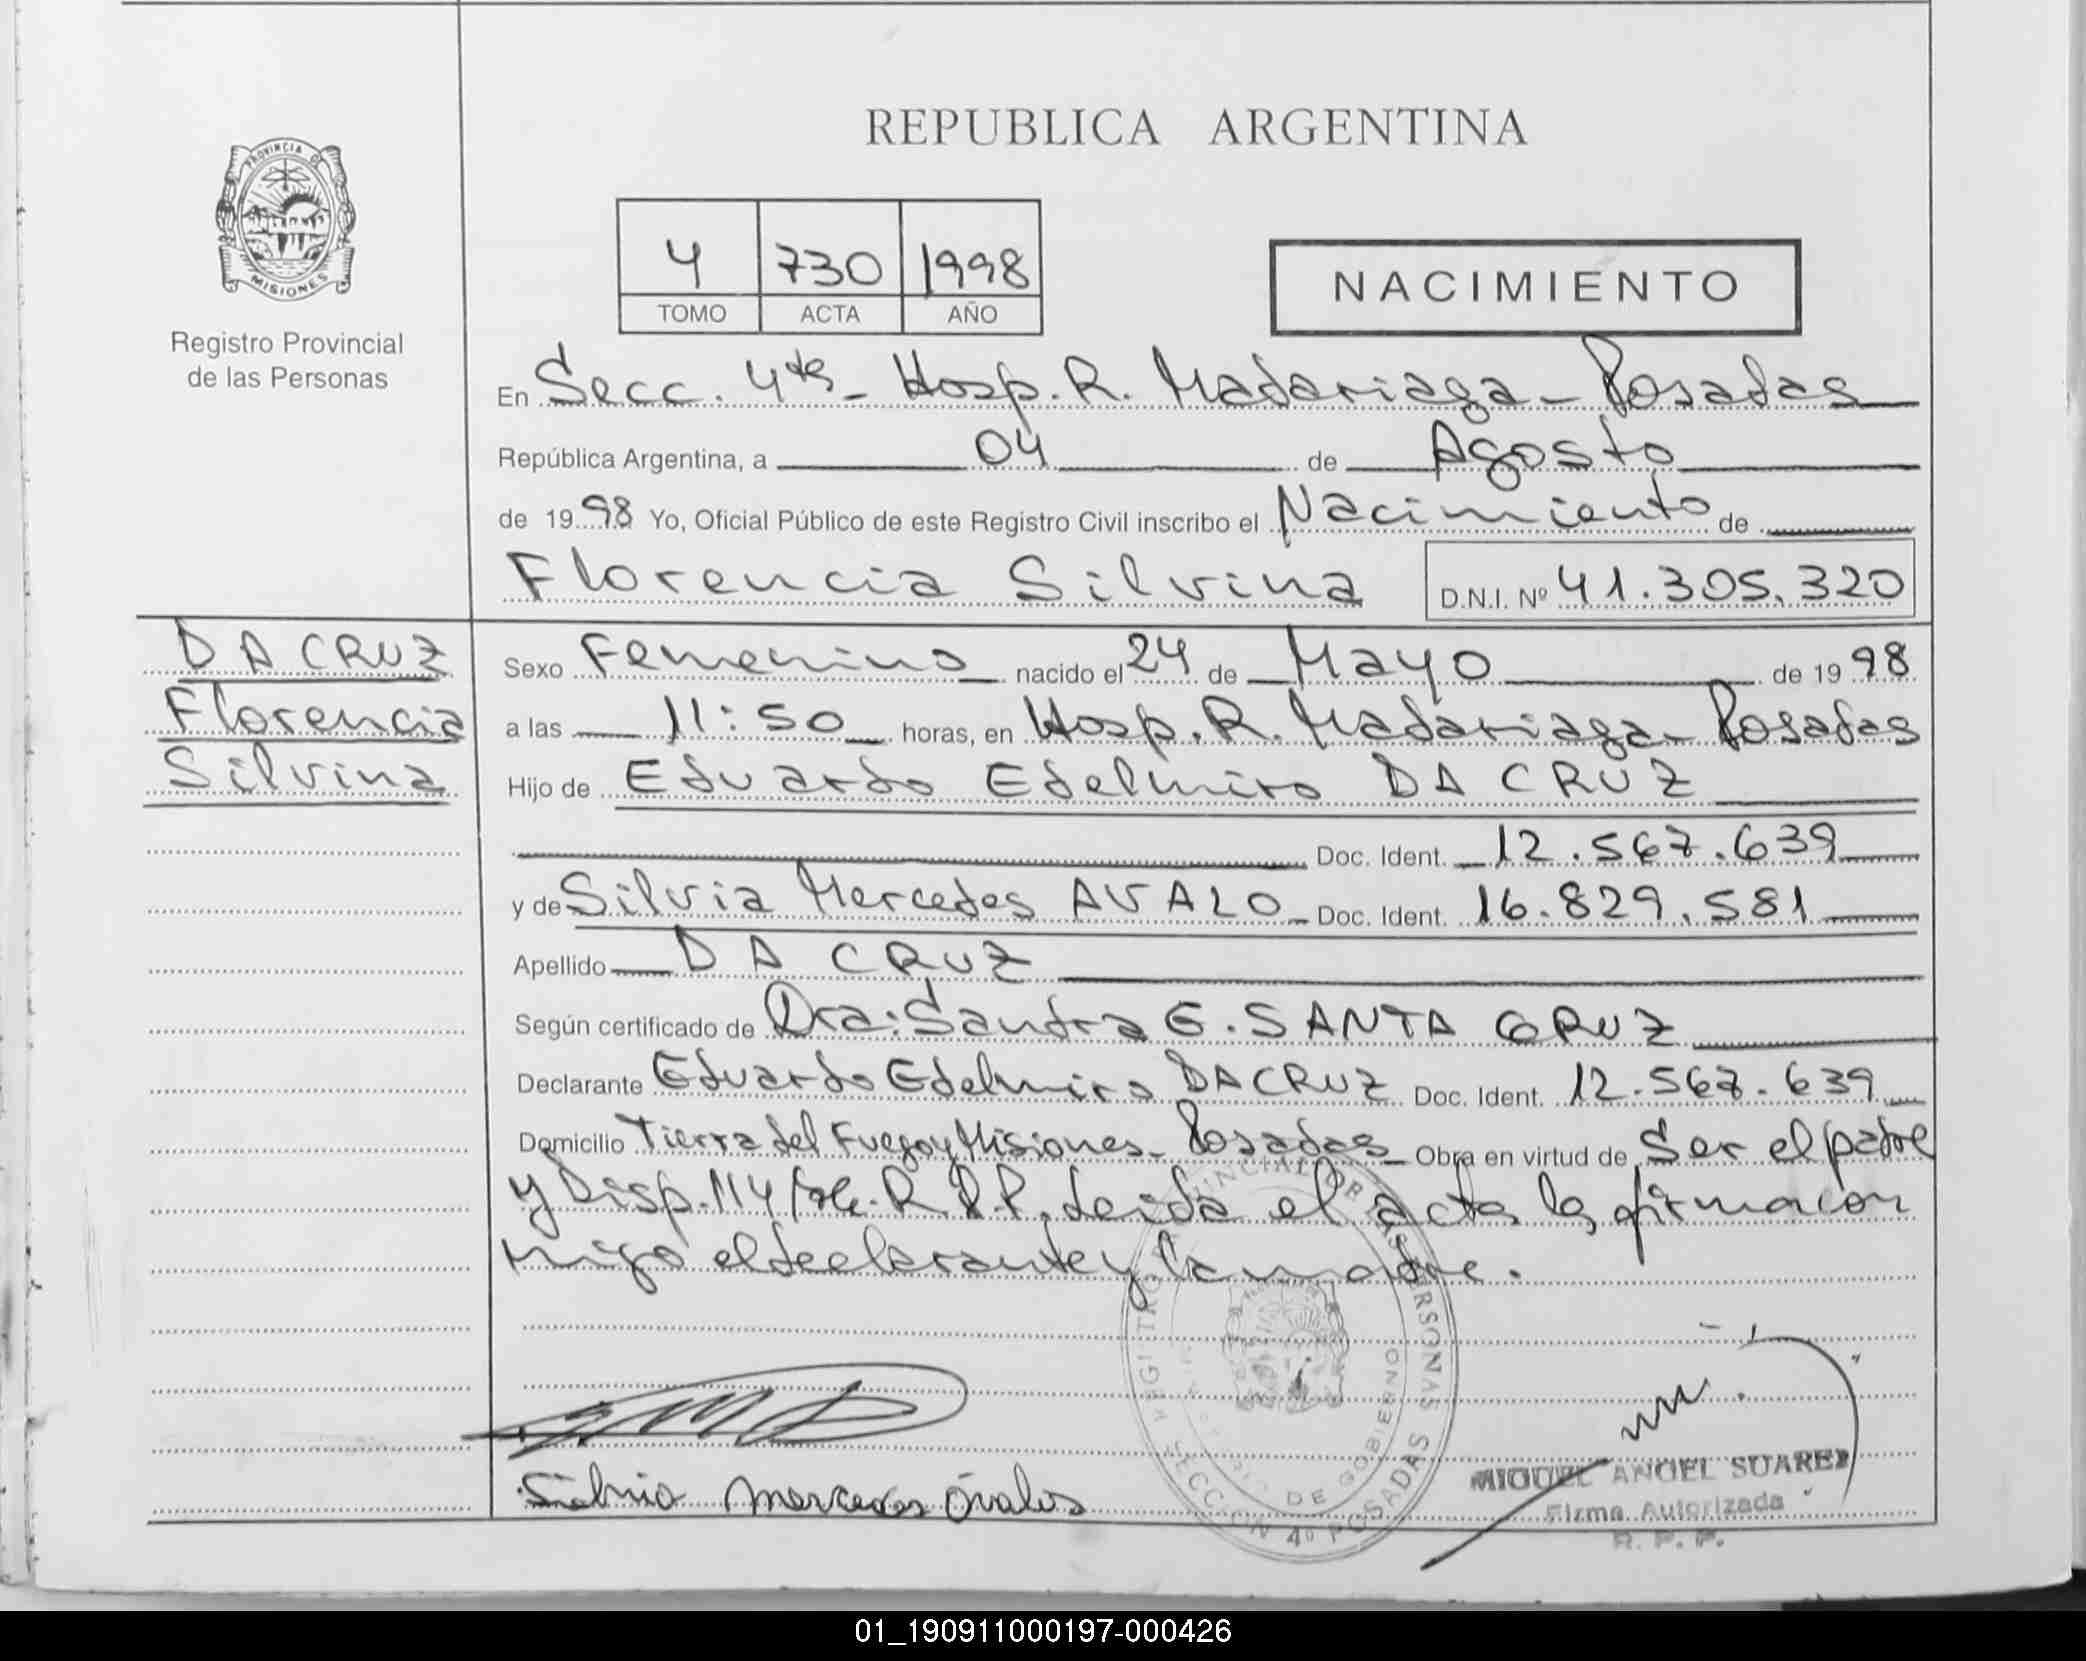 REPUBLICA ARGENTINA
PROVINCIA DE
MISIONES
Registro Provincial
de las Personas
4 730 1998
TOMO ACTA AÑO
NACIMIENTO
En Secc. 4ta - Hosp. R. Madariaga - Posadas
República Argentina, a 04 de Agosto
de 1998 Yo, Oficial Público de este Registro Civil inscribo el Nacimiento de
Florencia Silvina D.N.I. Nº 41.305.320
DA CRUZ
Florencia
Silvina
Sexo Femenino nacido el 24 de Mayo de 1998
a las 11:50 horas, en Hosp. R. Madariaga - Posadas
Hijo de Eduardo Edelmiro DA CRUZ
Doc. Ident. 12.567.639
y de Silvia Mercedes AVALO Doc. Ident. 16.829.581
Apellido DA CRUZ
Según certificado de Dra: Sandra G. SANTA CRUZ
Declarante Eduardo Edelmiro DA CRUZ Doc. Ident. 12.567.639
Domicilio Tierra del Fuego y Misiones - Posadas Obra en virtud de Ser el padre
y Disp. 114/ R.P.P. Leida el acta la firman con
migo el declarante y la madre.
Silvia Mercedes Ovalos
REGISTRO PROVINCIAL DE LAS PERSONAS
DE GOBIERNO
SECCION 4º POSADAS
MIGUEL ANGEL SUAREZ
Firma Autorizada
R. P. P.
01_190911000197-000426